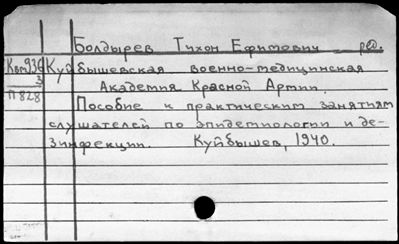 Болдырев Тихон Ефимович ред.
Квт936 Куйбышевская военно-медицинская
3
П828
Академия Красной Армии.
Пособие к практическим занятиям
слушателей по эпидемиологии и де-
зинфекции. Куйбышев, 1940.